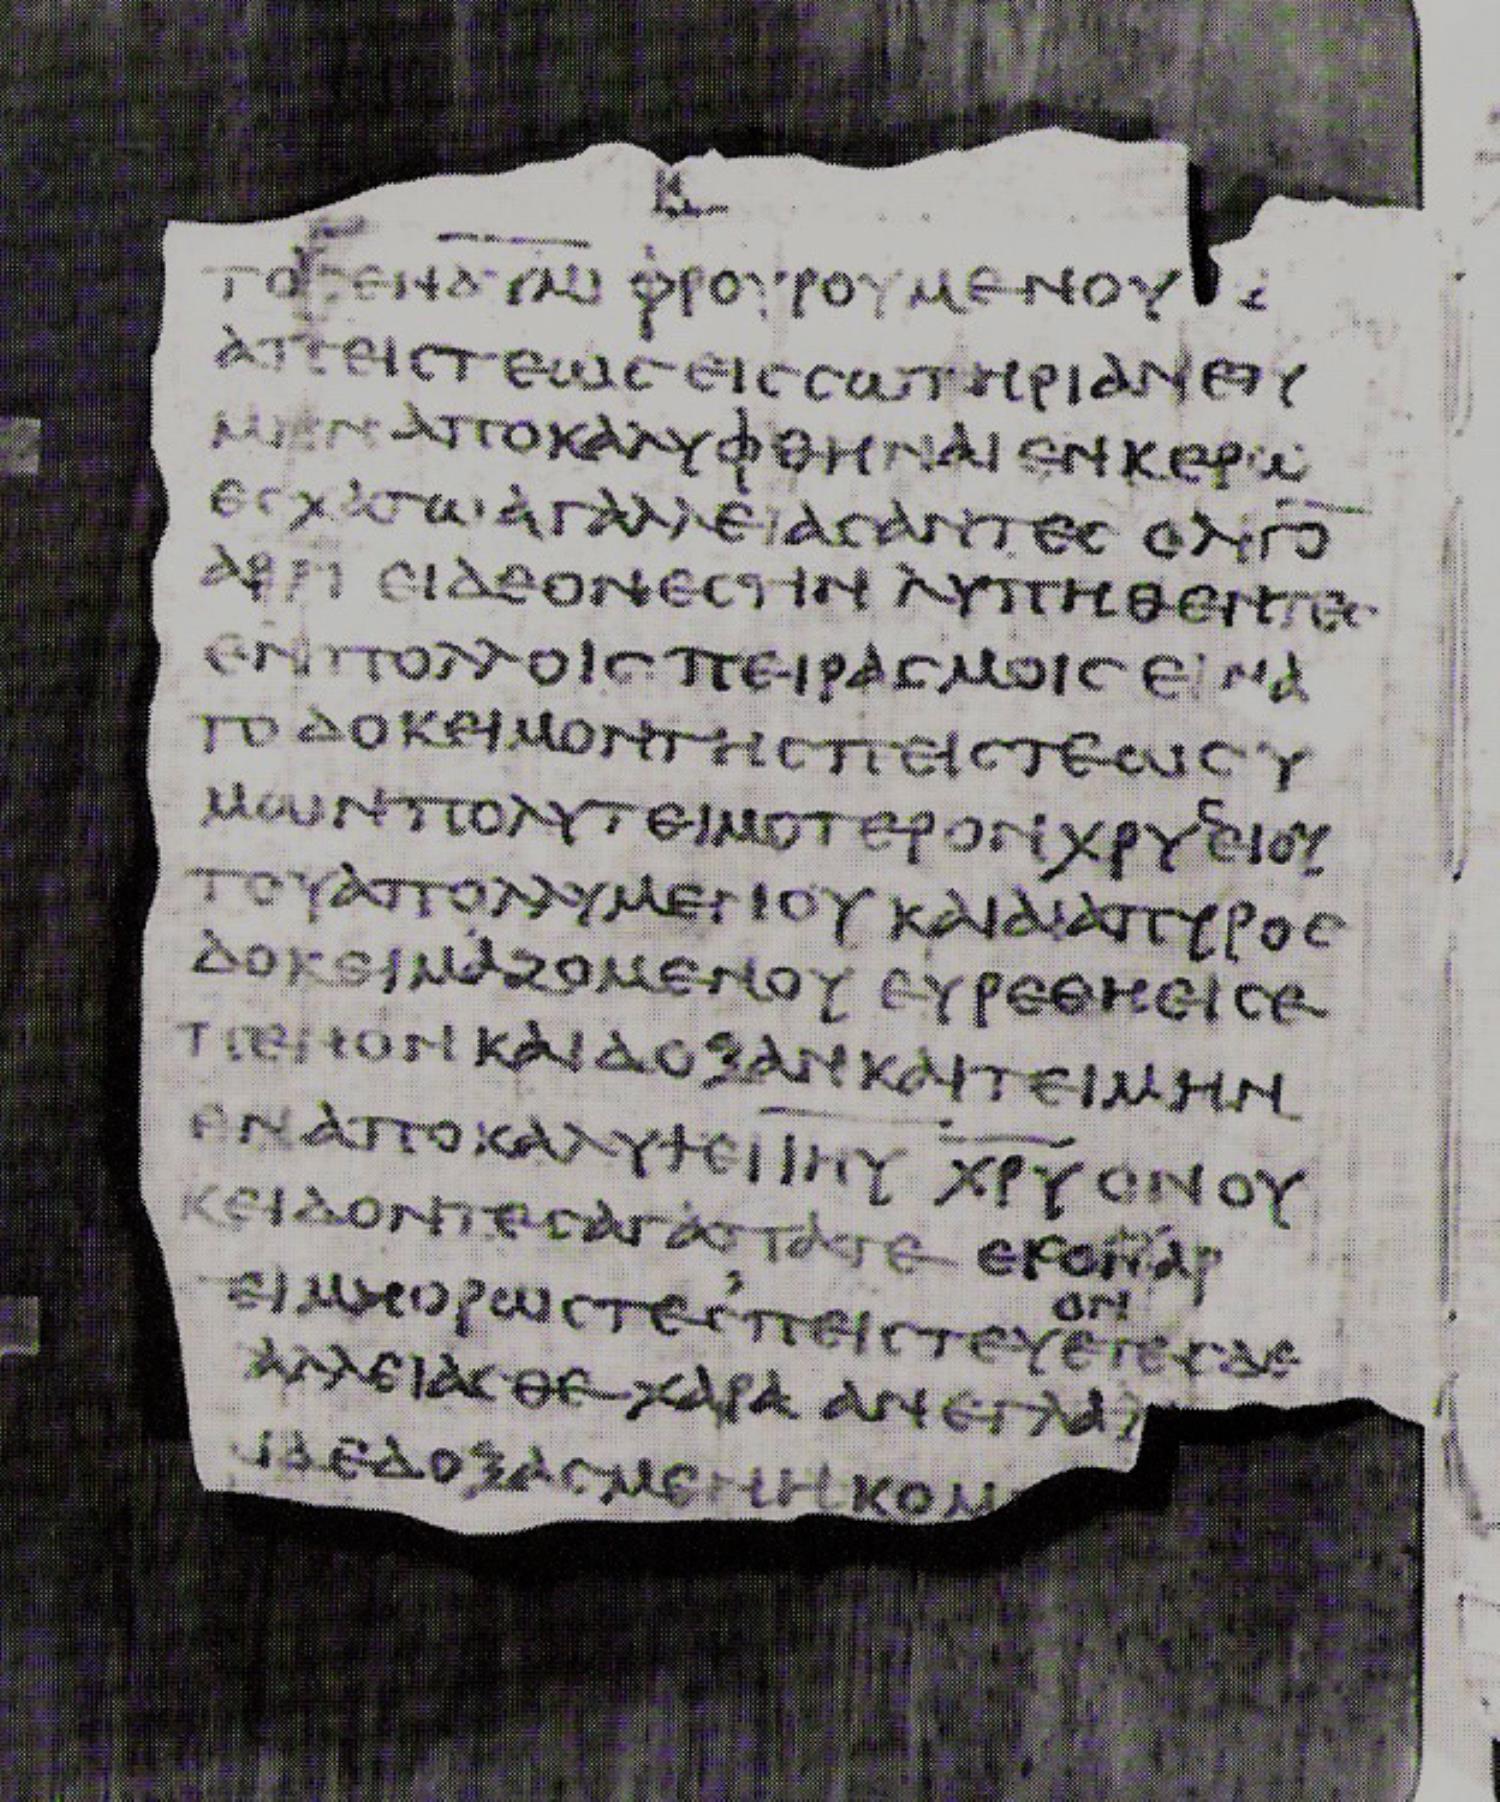 Β
ΤΟΥΣ ΕΝ ΔΥΝΑΜΙ ΦΡΟΥΡΟΥΜΕΝΟΥ
ΔΙΑ ΠΕΙCΤΕωC ΕΙC CωΤΗΡΙΑΝ ΕΤΥ
ΜΗΝ ΑΠΟΚΑΛΥΦΘΗΝΑΙ ΕΝ ΚΕΡω
ΕCΧΑΤωΙ ΑΓΑΛΛΕΙΑCΑΝΤΕC ΟΛΙΓΟ
ΑΡΤΙ ΕΙ ΔΕΟΝ ΕCΤΙΝ ΛΥΠΗΘΕΝΤΕC
ΕΝ ΠΟΛΛΟΙC ΠΕΙΡΑCΜΟΙC ΕΙΝΑ
ΤΟ ΔΟΚΕΙΜΟΝ ΤΗC ΠΕΙCΤΕωC Υ
ΜωΝ ΠΟΛΥΤΕΙΜΟΤΕΡΟΝ ΧΡΥCΕΙΟΥ
ΤΟΥ ΑΠΟΛΛΥΜΕΝΟΥ ΚΑΙ ΔΙΑ ΠΥΡΟC
ΔΟΚΕΙΜΑΖΟΜΕΝΟΥ ΕΥΡΕΘΗ ΕΙC Ε
ΠΕΝΟΝ ΚΑΙ ΔΟΞΑΝ ΚΑΙ ΤΕΙΜΗΝ
ΕΝ ΑΠΟΚΑΛΥΨΕΙ ΙΗΥ ΧΡΥ ΟΝ ΟΥ
Κ ΕΙΔΟΝΤΕC ΑΓΑΠΑΤΕ ΕΙC ΟΝ ΑΡ
ΕΙ ΜΗ ΟΡωCΤΕC ΠΕΙCΤΕΥΕΤΕC ΔΕ
ΑΛΛΕΙΑCΘΕ ΧΑΡΑ ΑΝΕΓΛΑΛ
ΔΕΔΟΞΑCΜΕΝΗ ΚΟΜ